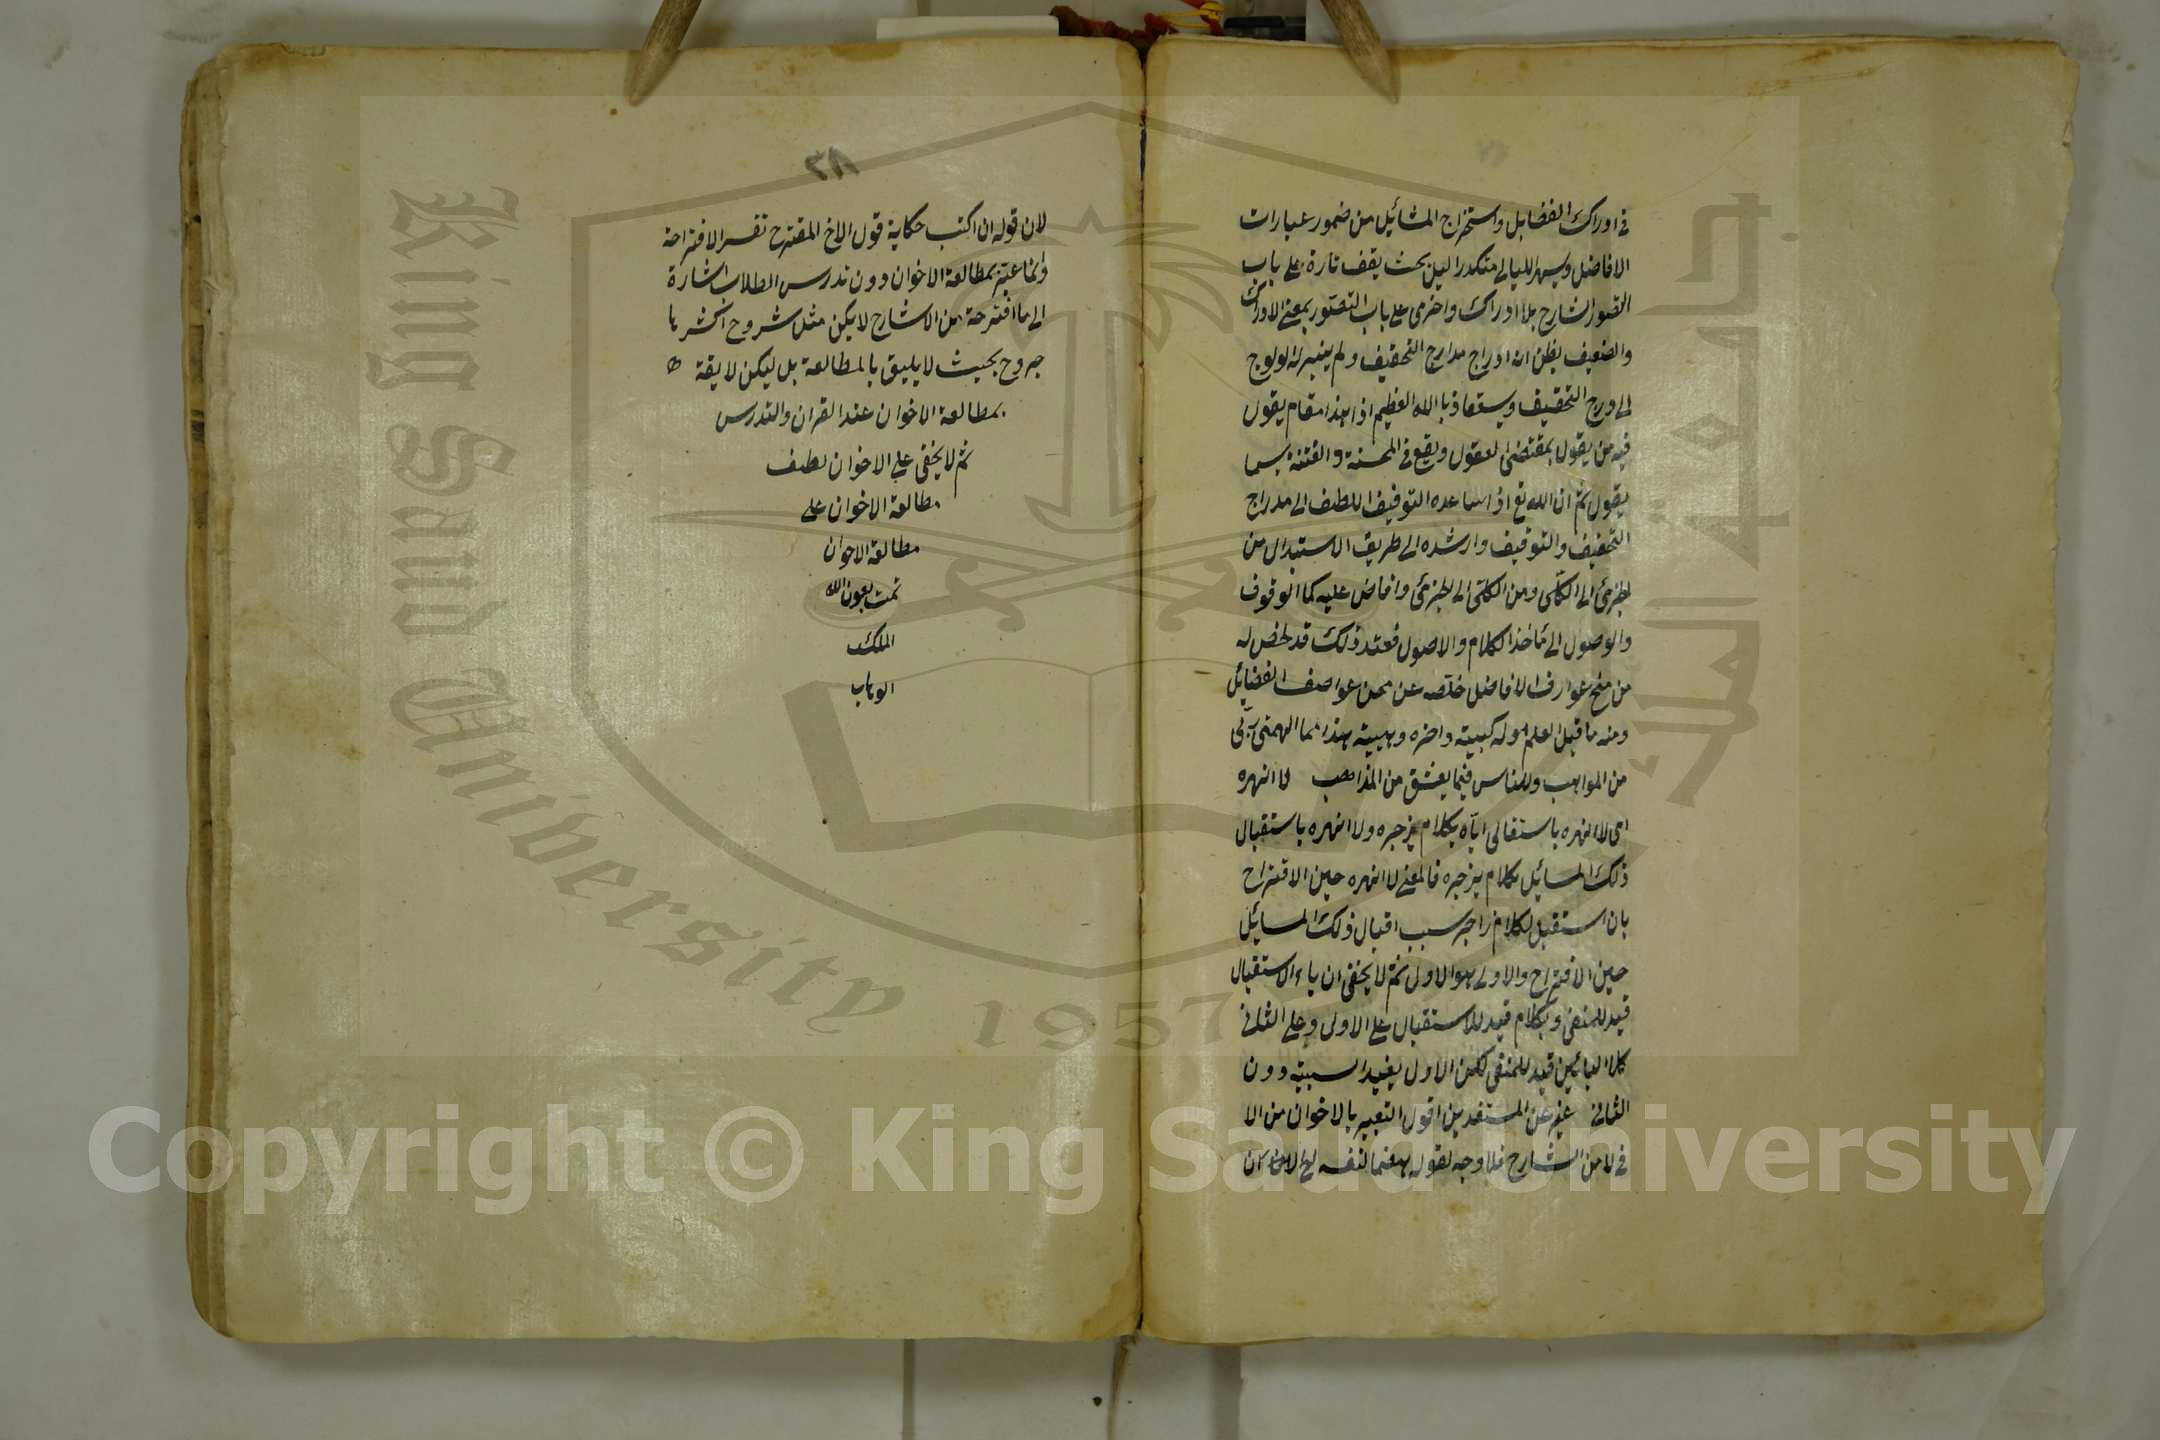 في ادراك الفضايل واستخراج المسائيل من ضمور عبارات
الافاضل ويسهر الليالي متكدرا لين بحث يقف تارة على باب
التصور الشارح بلا ادراك واخرى على باب التصور بمعنى الادراك
والضعيف يظن انه ادراج مدارج التحقيق ولم يتيسر له لولوج
الى درج التحقيق ويستعاذ بالله العظيم اذ هذا مقام يقول
فيه من يقول بمقتضى العقول ويقع في المحنة والفتنة بسما
يقول ثم ان الله تع اذا ساعده التوفيق اللطف الى مدراج
التحقيق والتوفيق وارشده الى طريق الاستبدال من
الجزئي الى الكلي ومن الكلي الى الجزئي وافاض عليه كما الوقوف
والوصول الى مأخذ الكلام والاصول فعند ذلك قد لخص له
من منح عوارف الافاضل خلصه عن محن عواصف الفضايل
ومنه ما قبل العلم امو له كبيته واضره وهيبته هذا مما الهمنى ربى
من المواهب وللناس فيما يعشق من المذاهب لا انهره
اى لا انهره باستقالى اياه بكلام يزجره ولا انهره باستقبال
ذلك المسائيل بكلام يزجره فالمعنى لا انهره حين الاقتراح
بان استقبل لكلام زاجر سبب اقبال ذلك المسائيل
حين الاقتراح والاولى هو الاول ثم لا يخفى ان ياء الاستقبال
قيد للمنفى وبكلام قيد للاستقبال على الاولى وعلى الثانى
كلا البائين قيد للمنفى لكن الاول يفيد السببية دون
الثانى غير عن المستفدين اقول التعبير بالاخوان من الا
فى لا من الشارح فلا وجه لقوله هضما لنفسه الخ
لان قوله ان اكتب حكاية قول الاخ المقترح تفسر الاقتراحه
وانما عتبر بمطالعة الاخوان دون تدرس الطلاب اشارة
الى ما اقترحة من الاشارح لا يكن مثل شروح اخشر با
جروح بحيث لا يليق بالمطالعة بل ليكن لايقة
بمطالعة الاخوان عند القران والتدرس
ثم لا يخفى على الاخوان لطيف
مطالعة الاخوان على
مطالعة الاخوان
تمت بعون الله
الملك
الوهاب
٨٣
King Saud University
1957
Copyright © King Saud University